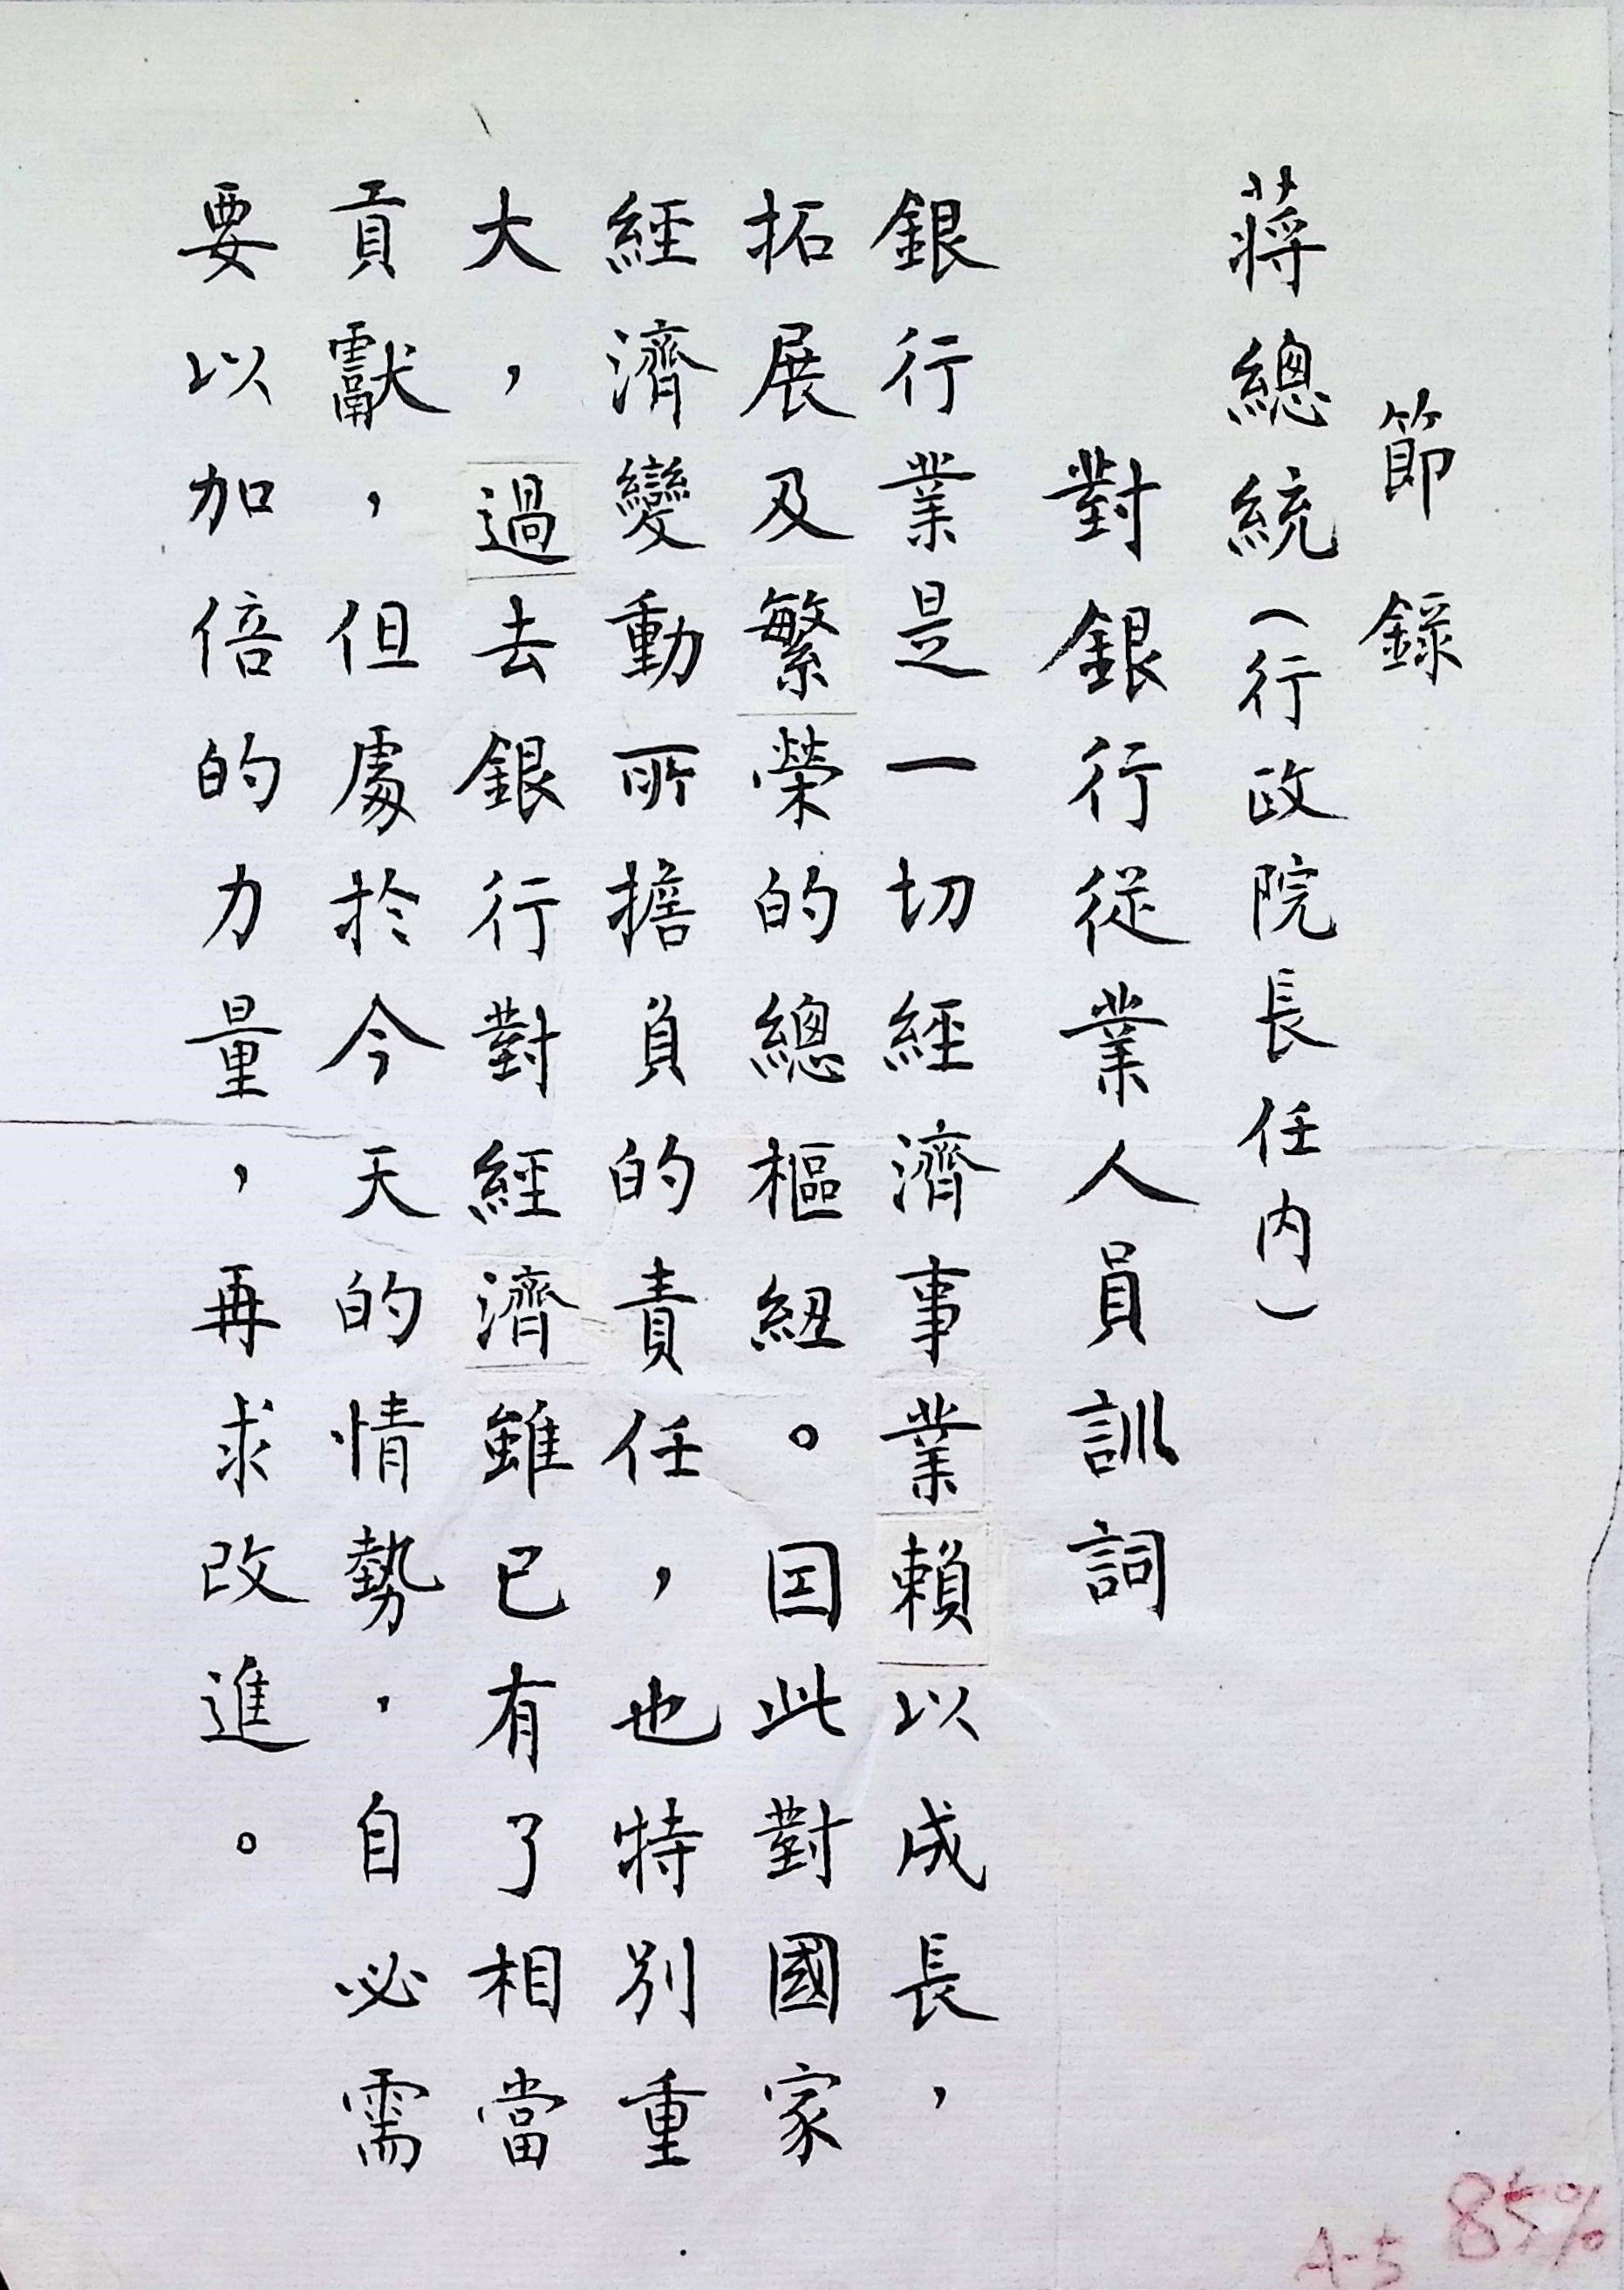 節錄
蔣總統(行政院長任內)
對銀行從業人員訓詞
銀行業是一切經濟事業賴以成長，
拓展及繁榮的總樞紐。因此對國家
經濟變動所擔負的責任，也特別重
大，過去銀行對經濟雖已有了相當
貢獻，但處於今天的情勢，自必需
要以加倍的力量，再求改進。
85%
A-5